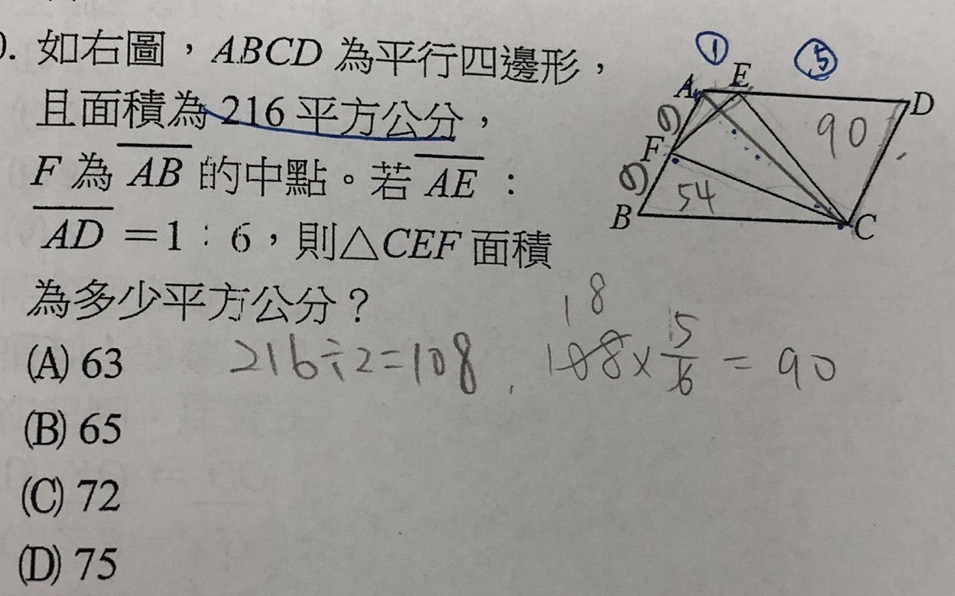 如右圖，ABCD 為平行四邊形，
且面積為 216 平方公分，
F 為 AB 的中點。若 AE：
AD =1：6，則△CEF 面積
為多少平方公分？
(A) 63
(B) 65
(C) 72
(D) 75
① ⑤
A E D
F 90
B 54 C
216÷2=108 , 108×5/6 = 90
18